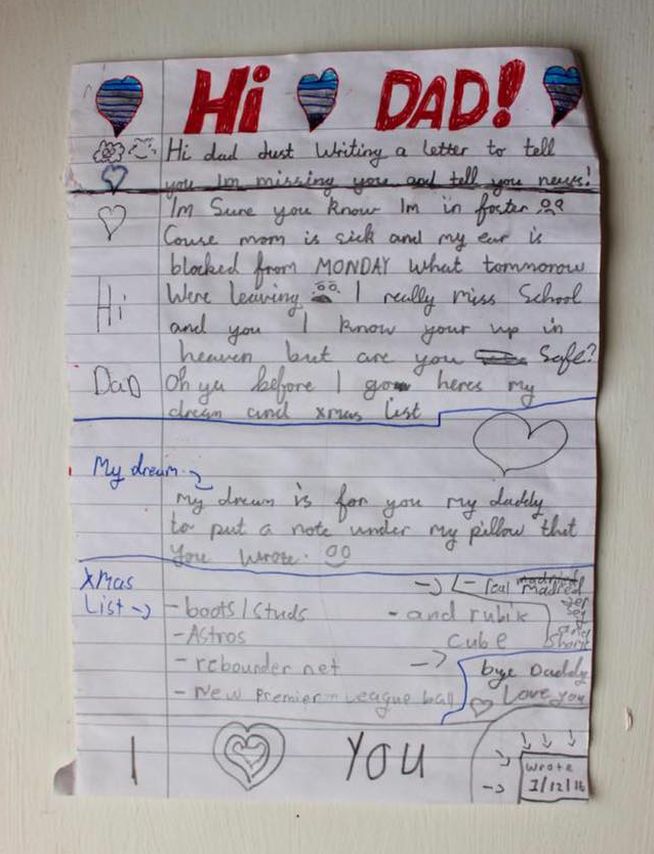 Hi DAD!
Hi dad Just Writing a letter to tell
you Im missing you and tell you news!
Im Sure you know Im in foster
Couse mom is sick and my ear is
blocked from MONDAY what tommorow
Were leaving I really miss School
and you I know your up in
heaven but are you Safe?
Oh ya before I go heres my
dream and xmas list
Hi
Dad
My dream
My dream is for you my daddy
to put a note under my pillow that
you wrote.
Xmas
List
- boots/studs
- Astros
- rebounder net
- New Premier League ball
- and rubik
cube
- real madred
jersey
and
shorts
bye Daddy
Love you
I YOU
Wrote
1/12/16